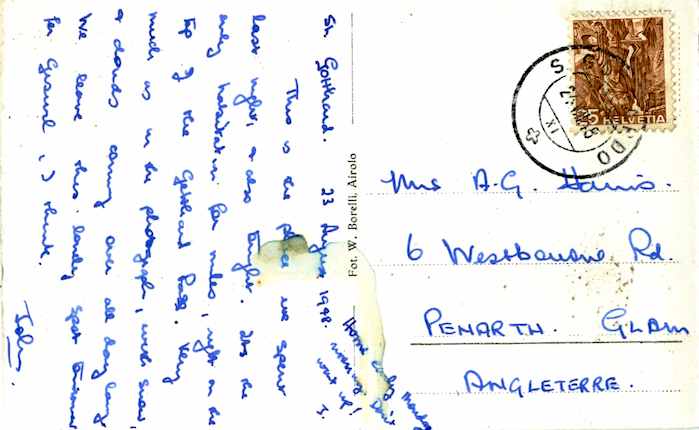 St. Gotthard. 23 August 1948.
This is the place we spent
last night, & also tonight. Its the
only habitation for miles, right on the
top of the Gotthard Pass. Very
much as in the photograph, with snow,
& clouds coming over all day long
We leave this lonely spot tomorrow
for Gsund, I think.
John.
Home early Monday
morning. Don't
wait up!
J.
Fot. W. Borelli, Airolo
HELVETIA
Mrs A.G. Harris.
6 Westbourne Rd.
PENARTH. GLAM
ANGLETERRE.